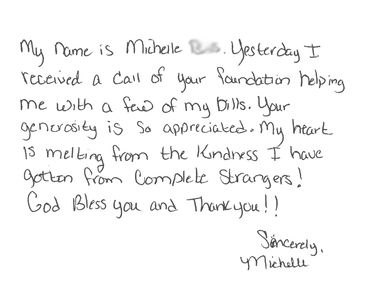 My Name is Michelle . Yesterday I
received a call of your foundation helping
me with a few of my bills. Your
generosity is so appreciated. My heart
is melting from the Kindness I have
gotton from Complete Strangers!
God Bless you and Thankyou!!
Sincerely,
Michelle